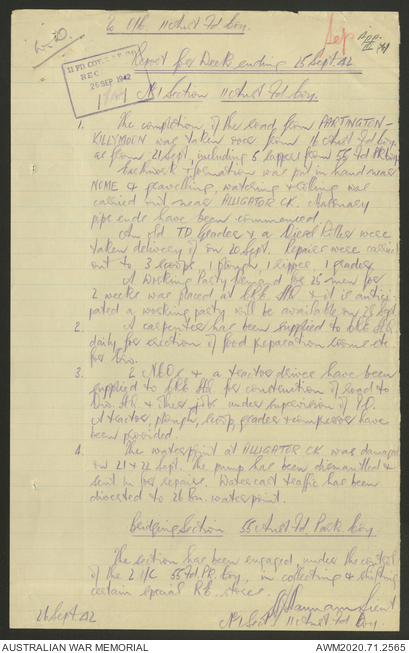 To 2I/C. 11 Aust Fd Coy.
Sep
App
Report for Week ending 25 Sept. 42
11 FD COY
REC
26 SEP 1942
No 1 Section 11 Aust Fd Coy.
1. The completion of the road from PARTINGTON -
KILLYMOON was taken over from 16 Aust Fd Coy.
as from 21 Sept, including 5 sappers from 55 Fd PK Coy.
Rockwork & formation was put in hand near
NOME & gravelling, watering & rolling was
carried out near ALLIGATOR CK. Masonary
pipe ends have been commenced.
An old TD grader & a Diesel Roller were
taken delivery of on 20 Sept. Repairs were carried
out to 3 scoops 1 plough, 1 ripper 1 grader.
A Working Party demand for 25 men for
2 weeks was placed at CRE HQ & it is antici-
pated a working party will be available on 28 Sept.
2. A carpenter has been supplied to CRE HQ
daily for erection of food preparation rooms etc
for Div.
3. 2 NCOs & a tractor driver have been
supplied to CRE HQ for construction of road to
Div. HQ & other jobs under supervision of
A tractor, plough, scoop, grader & compressor have
been provided.
4. The waterpoint at ALLIGATOR CK. was damaged
on 21 & 22 Sept. The pump has been dismantled &
sent in for repairs. Watercart traffic has been
directed to 26 Bn. waterpoint.
Bridging Section 55 Aust Fd Park Coy.
The section has been engaged, under the control
of the 2 I/C 55 Fd PK. Coy., in collecting & shifting
certain special R.E. stores.
Lieut
26 Sept 42
No 1 Sect. 11 Aust Fd Coy.
AUSTRALIAN WAR MEMORIAL
AWM2020.71.2565